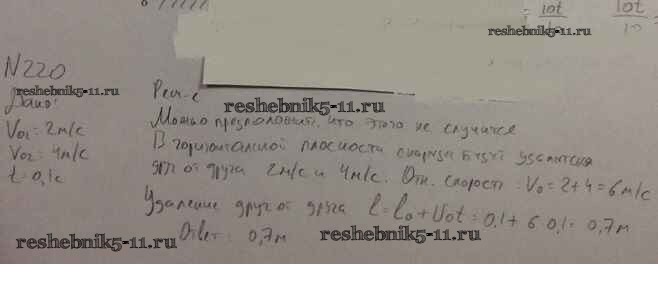 lot lot
10
reshebnik5-11.ru
N220
reshebnik5-11.ru
Дано: Реш-е
reshebnik5-11.ru
V01 = 2м/с Можно предположить, что этого не случится
V02 = 4м/с В горизонтальной плоскости снаряды будут удаляться
t = 0,1с друг от друга 2м/с и 4м/с. Отн. скорость: V0 = 2+4 = 6 м/с
Удаление друг от друга l = l0 + V0t = 0,1 + 6 0,1 = 0,7м
Ответ: 0,7м
reshebnik5-11.ru
reshebnik5-11.ru